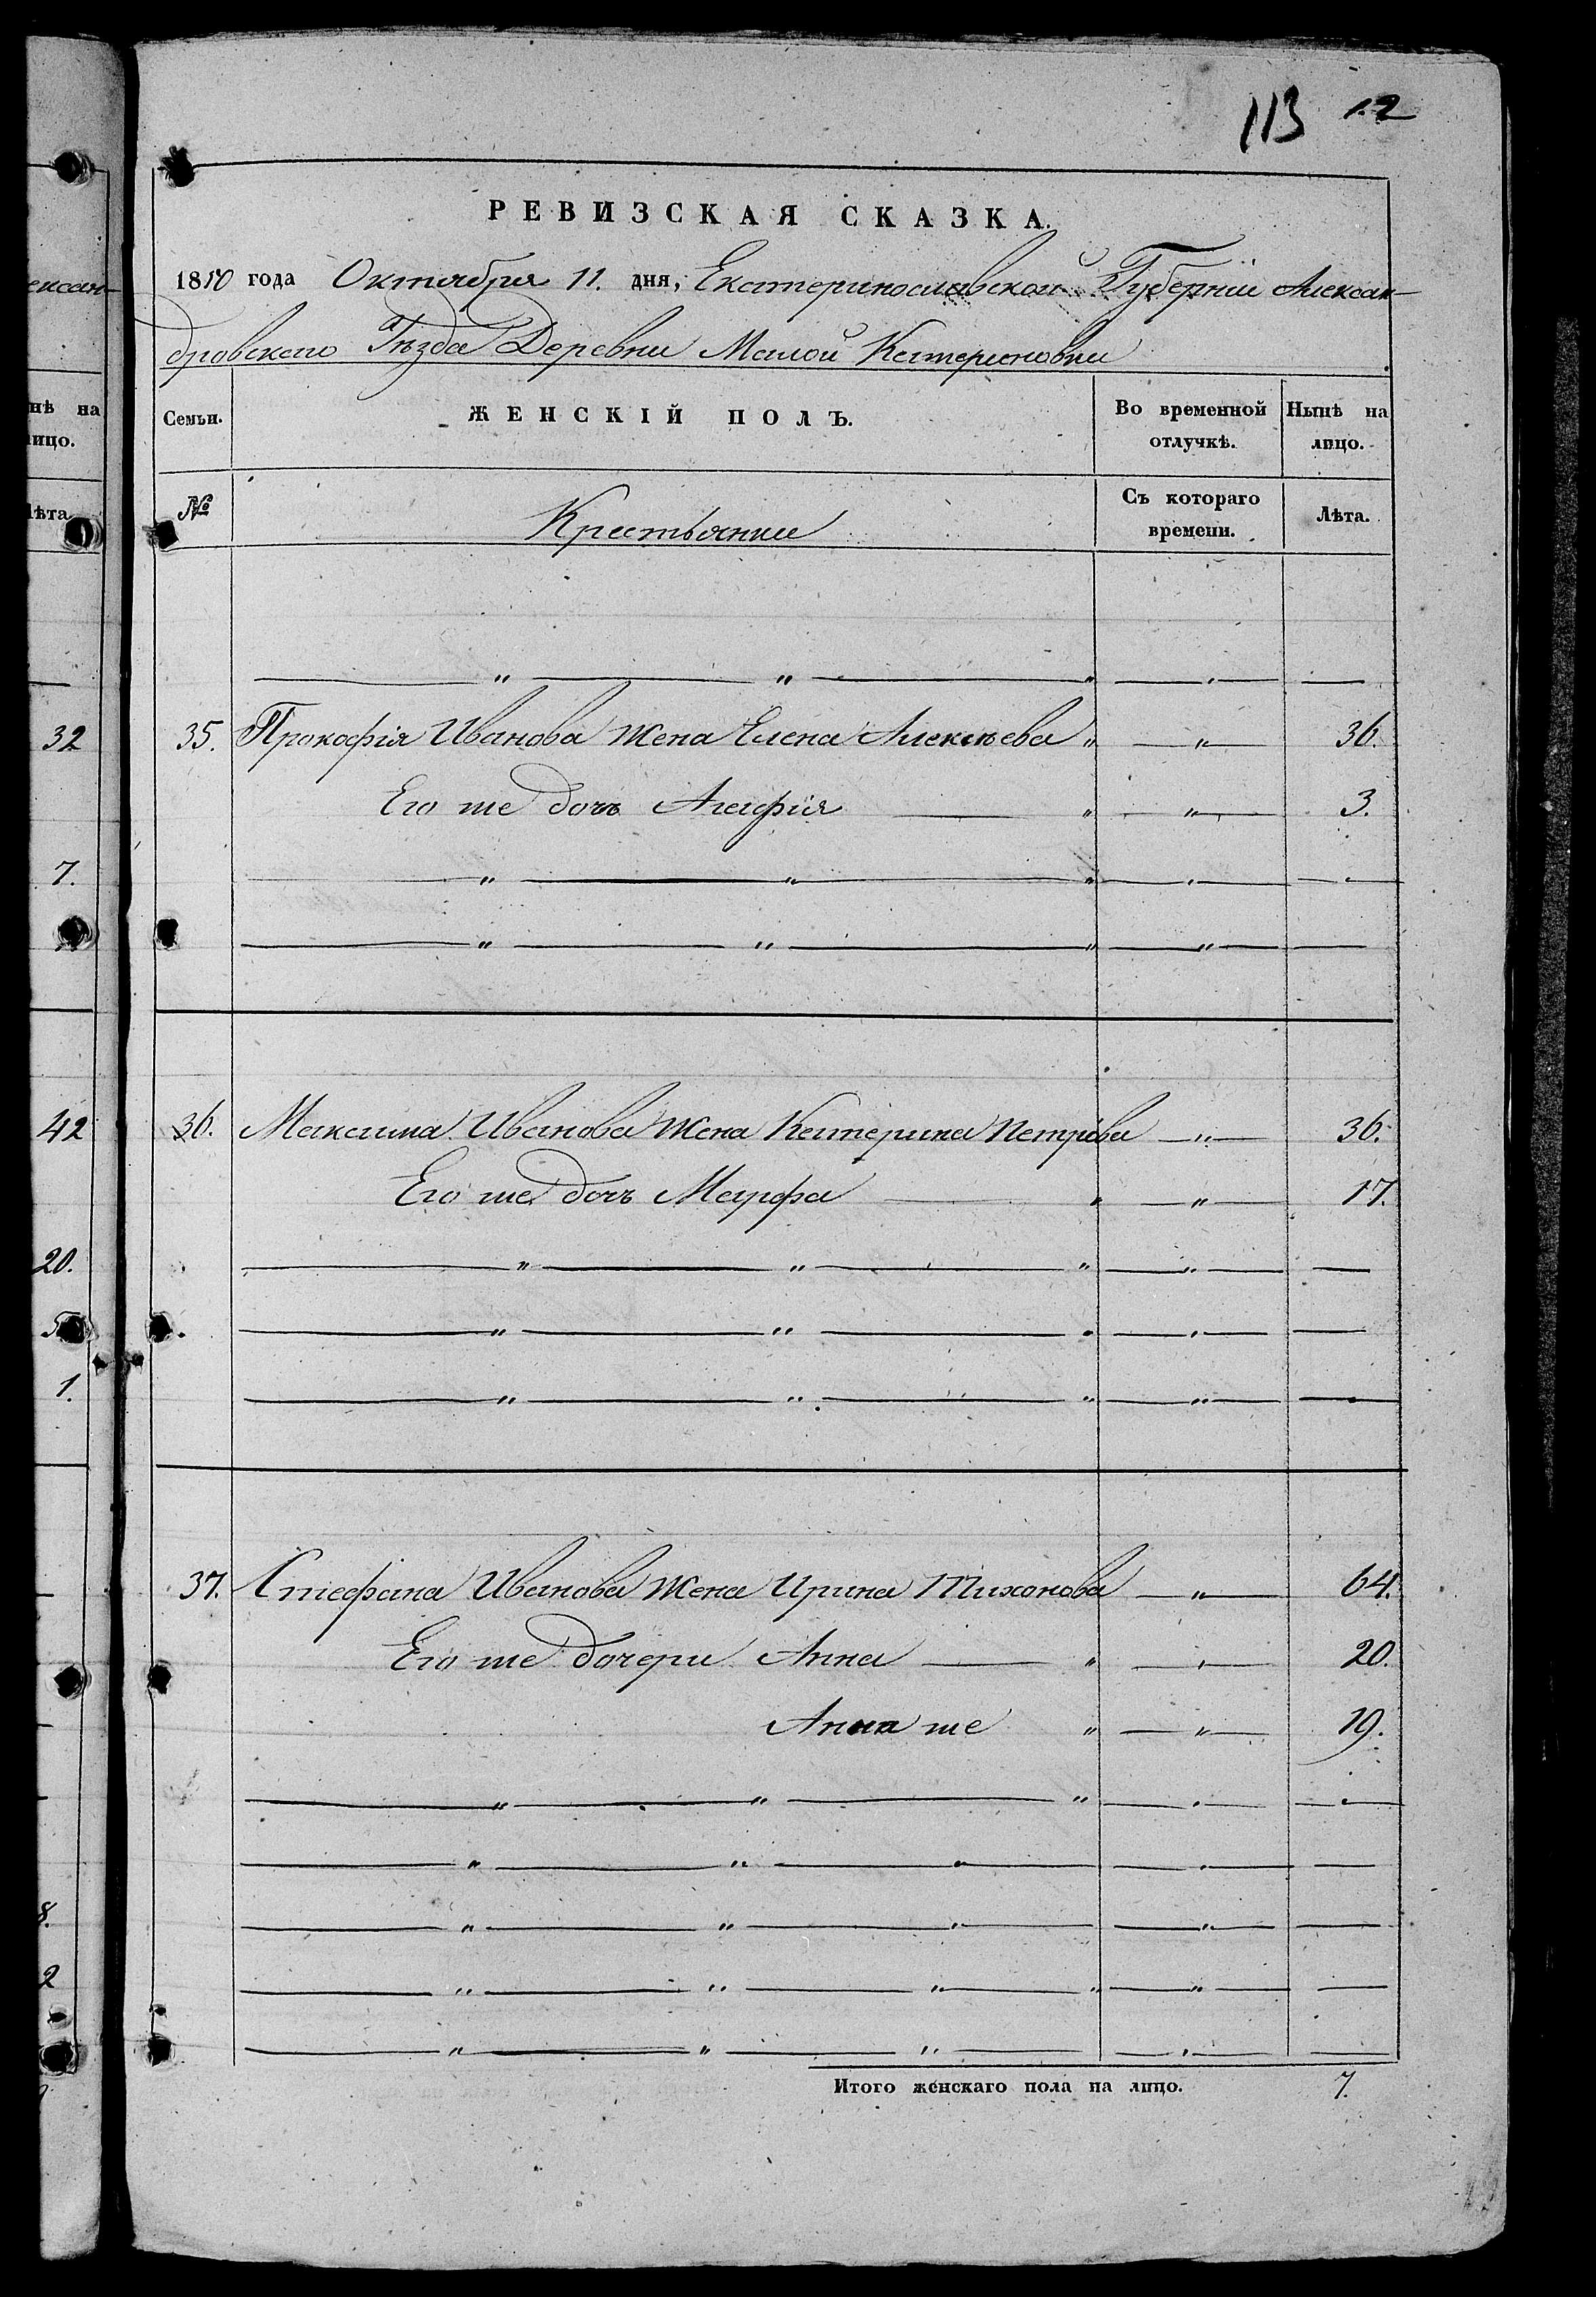 113 12
РЕВИЗСКАЯ СКАЗКА.
1850 года Октября 11. дня, Екатеринославской Губерніи Алексан-
дровскаго Уѣзда Деревни Малой Катериновки
Семьи. ЖЕНСКІЙ ПОЛЪ. Во временной отлучкѣ. Нынѣ на лицо.
№ Крестьянки Съ котораго времени. Лѣта.
35. Прокофія Иванова жена Елена Алексѣева " — " — 36.
Его же дочь Агафія — " — " — 3.
36. Максима Иванова жена Катерина Петрова — " — 36.
Его же дочь Марфа — " — " — 17.
37. Стефана Иванова жена Ирина Тихонова — " — 64.
Его же дочери Анна — " — " — 20.
Анна же " — " — 19.
Итого женскаго пола на лицо. 7.
ексан-
нѣ на
ицо.
ѣта
32
7.
42
20.
1.
8.
2